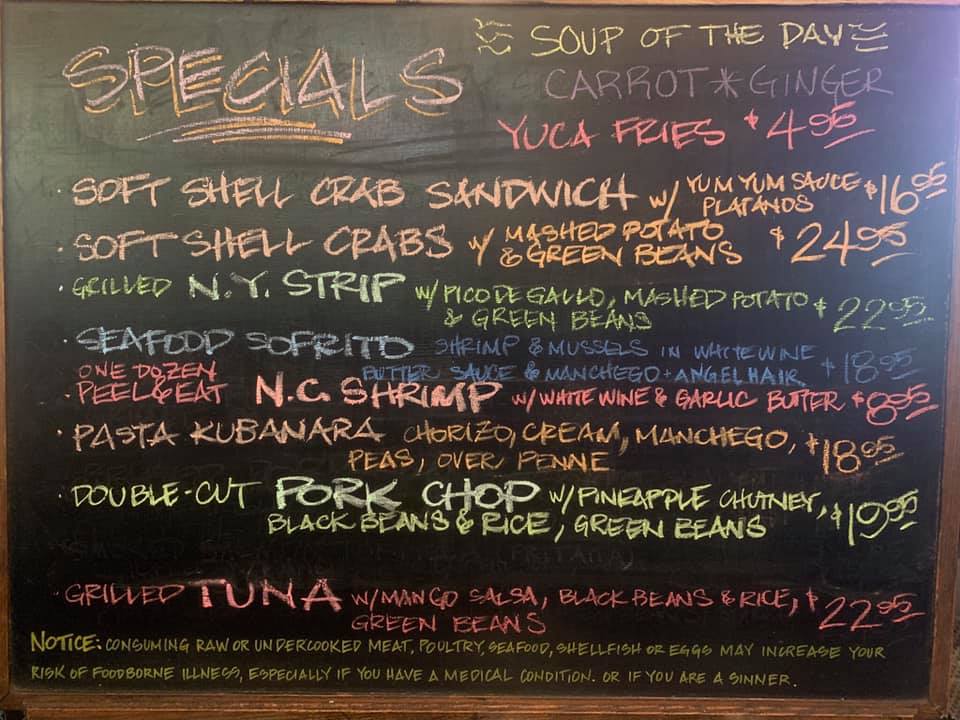 SPECIALS
SOUP OF THE DAY
CARROT * GINGER
YUCA FRIES $4.95
· SOFT SHELL CRAB SANDWICH w/ YUM YUM SAUCE $16.95
PLATANOS
· SOFT SHELL CRABS w/ MASHED POTATO $24.95
& GREEN BEANS
· GRILLED N.Y. STRIP w/ PICO DE GALLO, MASHED POTATO $22.95
& GREEN BEANS
· SEAFOOD SOFRITO SHRIMP & MUSSELS IN WHITE WINE
BUTTER SAUCE & MANCHEGO + ANGEL HAIR $18.95
ONE DOZEN
· PEEL & EAT N.C. SHRIMP w/ WHITE WINE & GARLIC BUTTER $8.95
· PASTA KUBANARA CHORIZO, CREAM, MANCHEGO, $18.95
PEAS, OVER PENNE
· DOUBLE-CUT PORK CHOP w/ PINEAPPLE CHUTNEY, $19.95
BLACK BEANS & RICE, GREEN BEANS
· GRILLED TUNA w/ MANGO SALSA, BLACK BEANS & RICE, $22.95
GREEN BEANS
NOTICE: CONSUMING RAW OR UNDERCOOKED MEAT, POULTRY, SEAFOOD, SHELLFISH OR EGGS MAY INCREASE YOUR
RISK OF FOODBORNE ILLNESS, ESPECIALLY IF YOU HAVE A MEDICAL CONDITION. OR IF YOU ARE A SINNER.